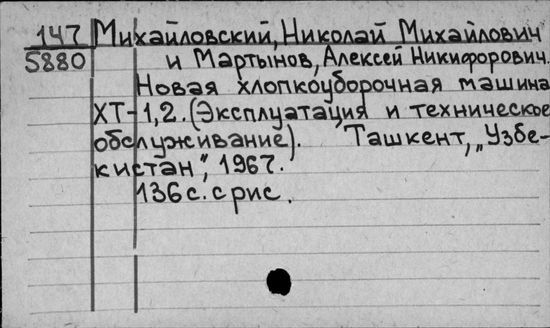 147 Михайловский, Николай Михайлович
5880 и Мартынов, Алексей Никифорович.
Новая хлопкоуборочная машина
ХТ-1,2. (Эксплуатация и техническое
обслуживание). Ташкент, „Узбе-
кистан", 1967.
136 с. с рис.